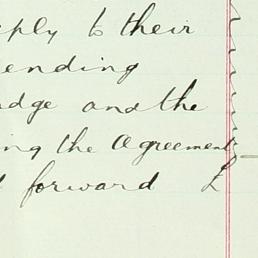 eply to their
ending
dge and the
ing the Agreement
forward £